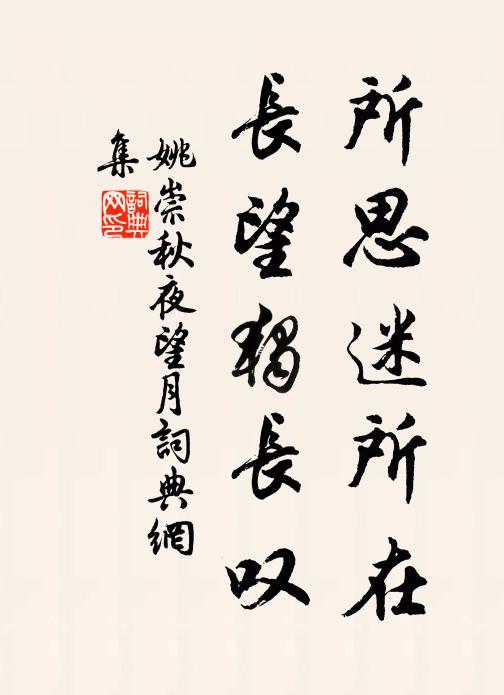 所思迷所在
長望獨長叹
姚崇秋夜望月詞典網
集
詞典網印